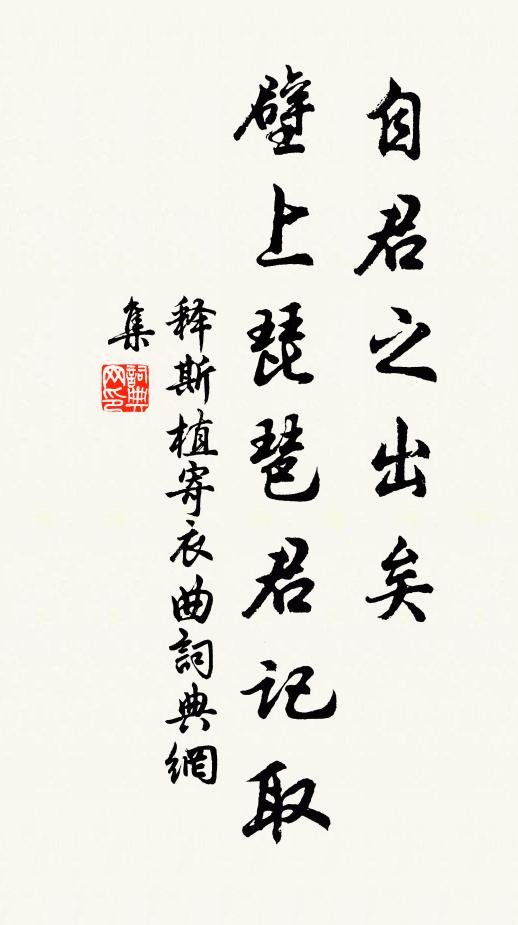 自君之出矣
壁上琵琶君记取
释斯植寄衣曲詞典網
集
詞典
网印